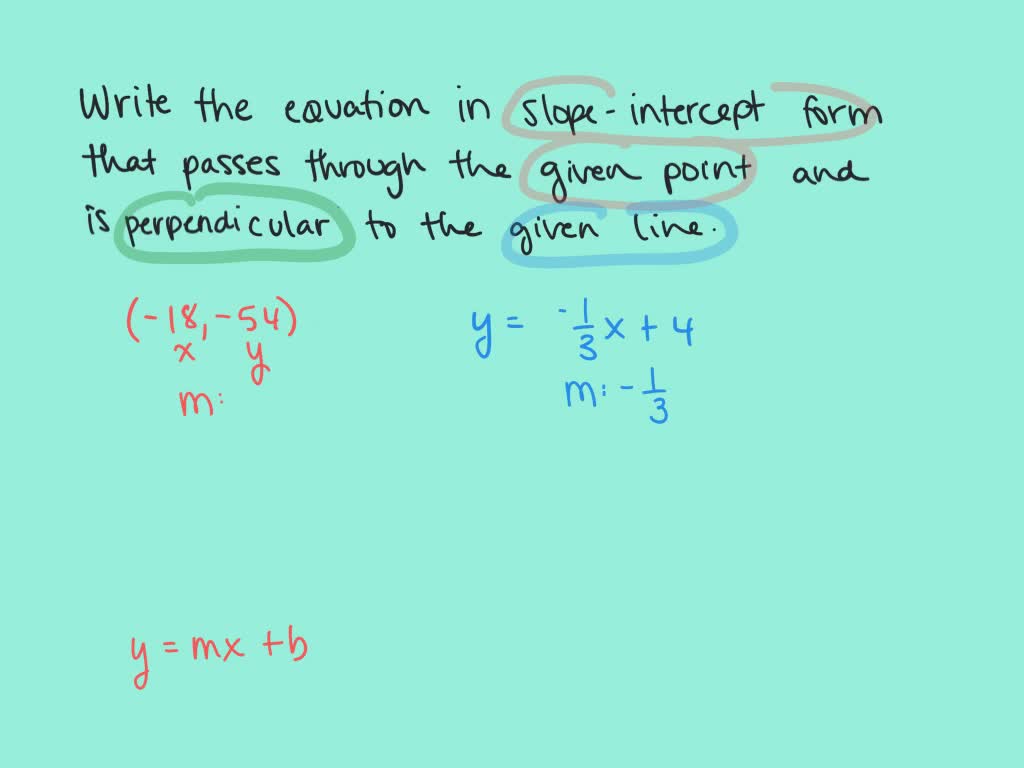 Write the equation in slope-intercept form
that passes through the given point and
is perpendicular to the given line.
(-18, -54) y = -1/3 x + 4
x y
m: m: -1/3
y = mx + b